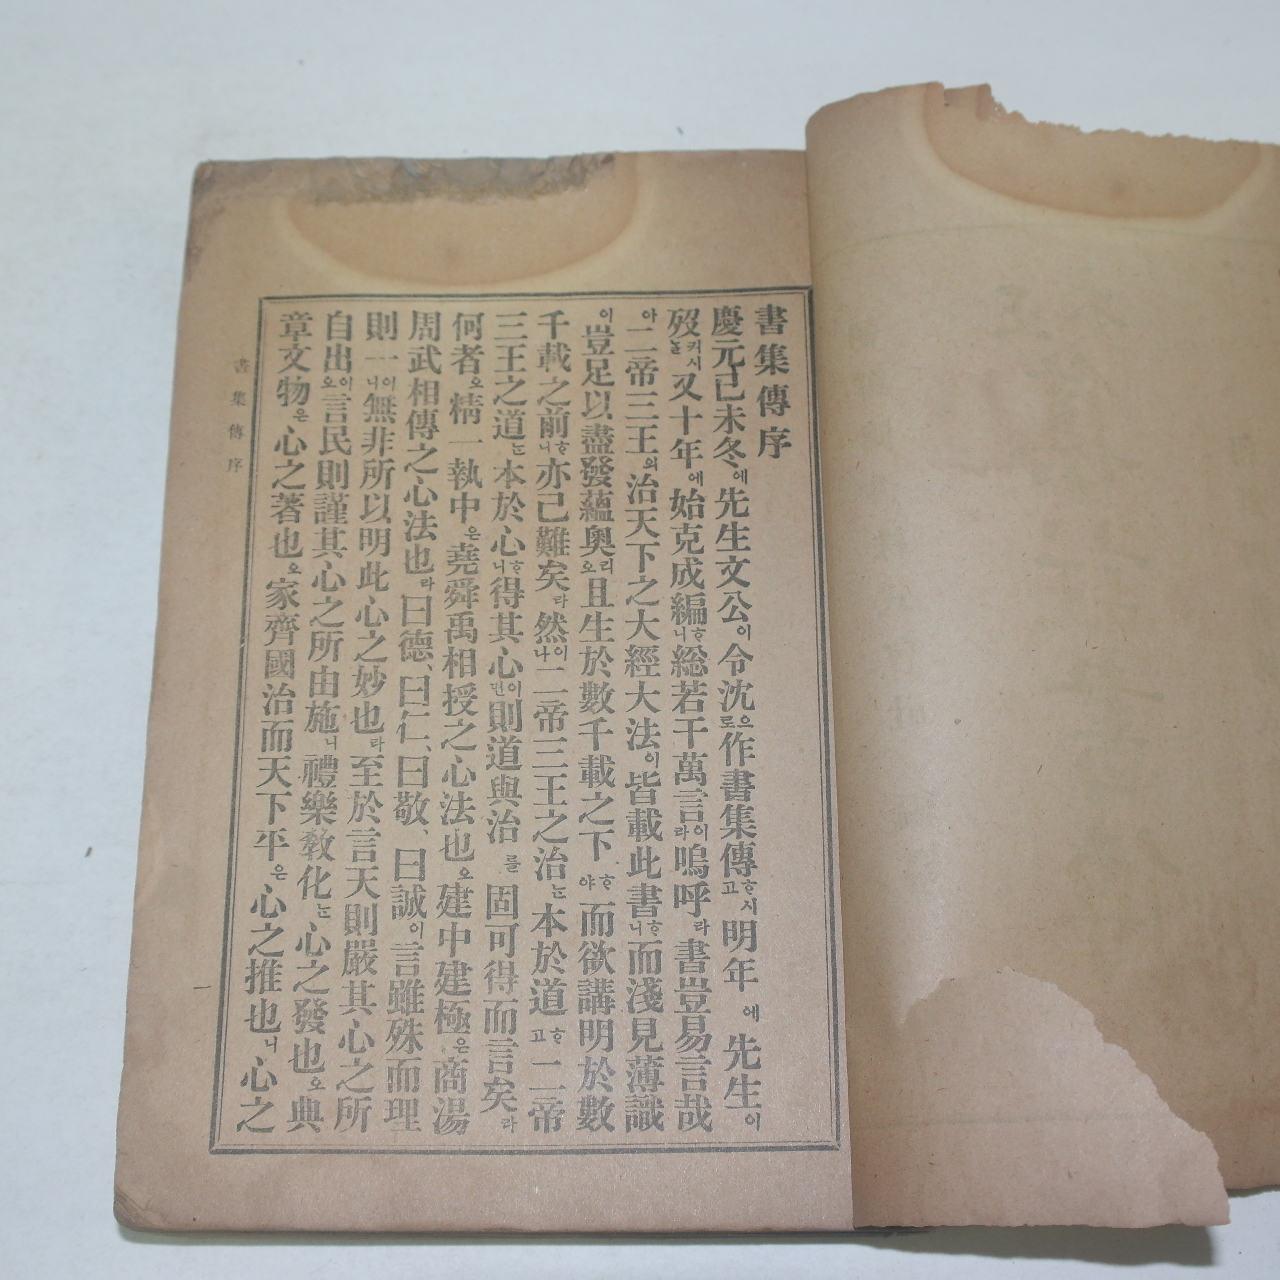 書集傳序
慶元己未冬에先生文公이令沈으로作書集傳ᄒᆞ시고明年에先生이
歿커시ᄂᆞᆯ又十年에始克成編ᄒᆞ니総若干萬言이라嗚呼라書豈易言哉
아二帝三王의治天下之大經大法이皆載此書ᄒᆞ니而淺見薄識
이豈足以盡發蘊奧리오且生於數千載之下ᄒᆞ야而欲講明於數
千載之前ᄒᆞ니亦已難矣라然이나二帝三王之治ᄂᆞᆫ本於道ᄒᆞ고二帝
三王之道ᄂᆞᆫ本於心ᄒᆞ니得其心이면則道與治를固可得而言矣라
何者오精一執中은堯舜禹相授之心法也오建中建極은商湯
周武相傳之心法也라曰德、曰仁、曰敬、曰誠이言雖殊而理
則一이니無非所以明此心之妙也라至於言天則嚴其心之所
自出이오言民則謹其心之所由施니禮樂敎化ᄂᆞᆫ心之發也오典
章文物은心之著也오家齊國治而天下平은心之推也니心之
書集傳序
一